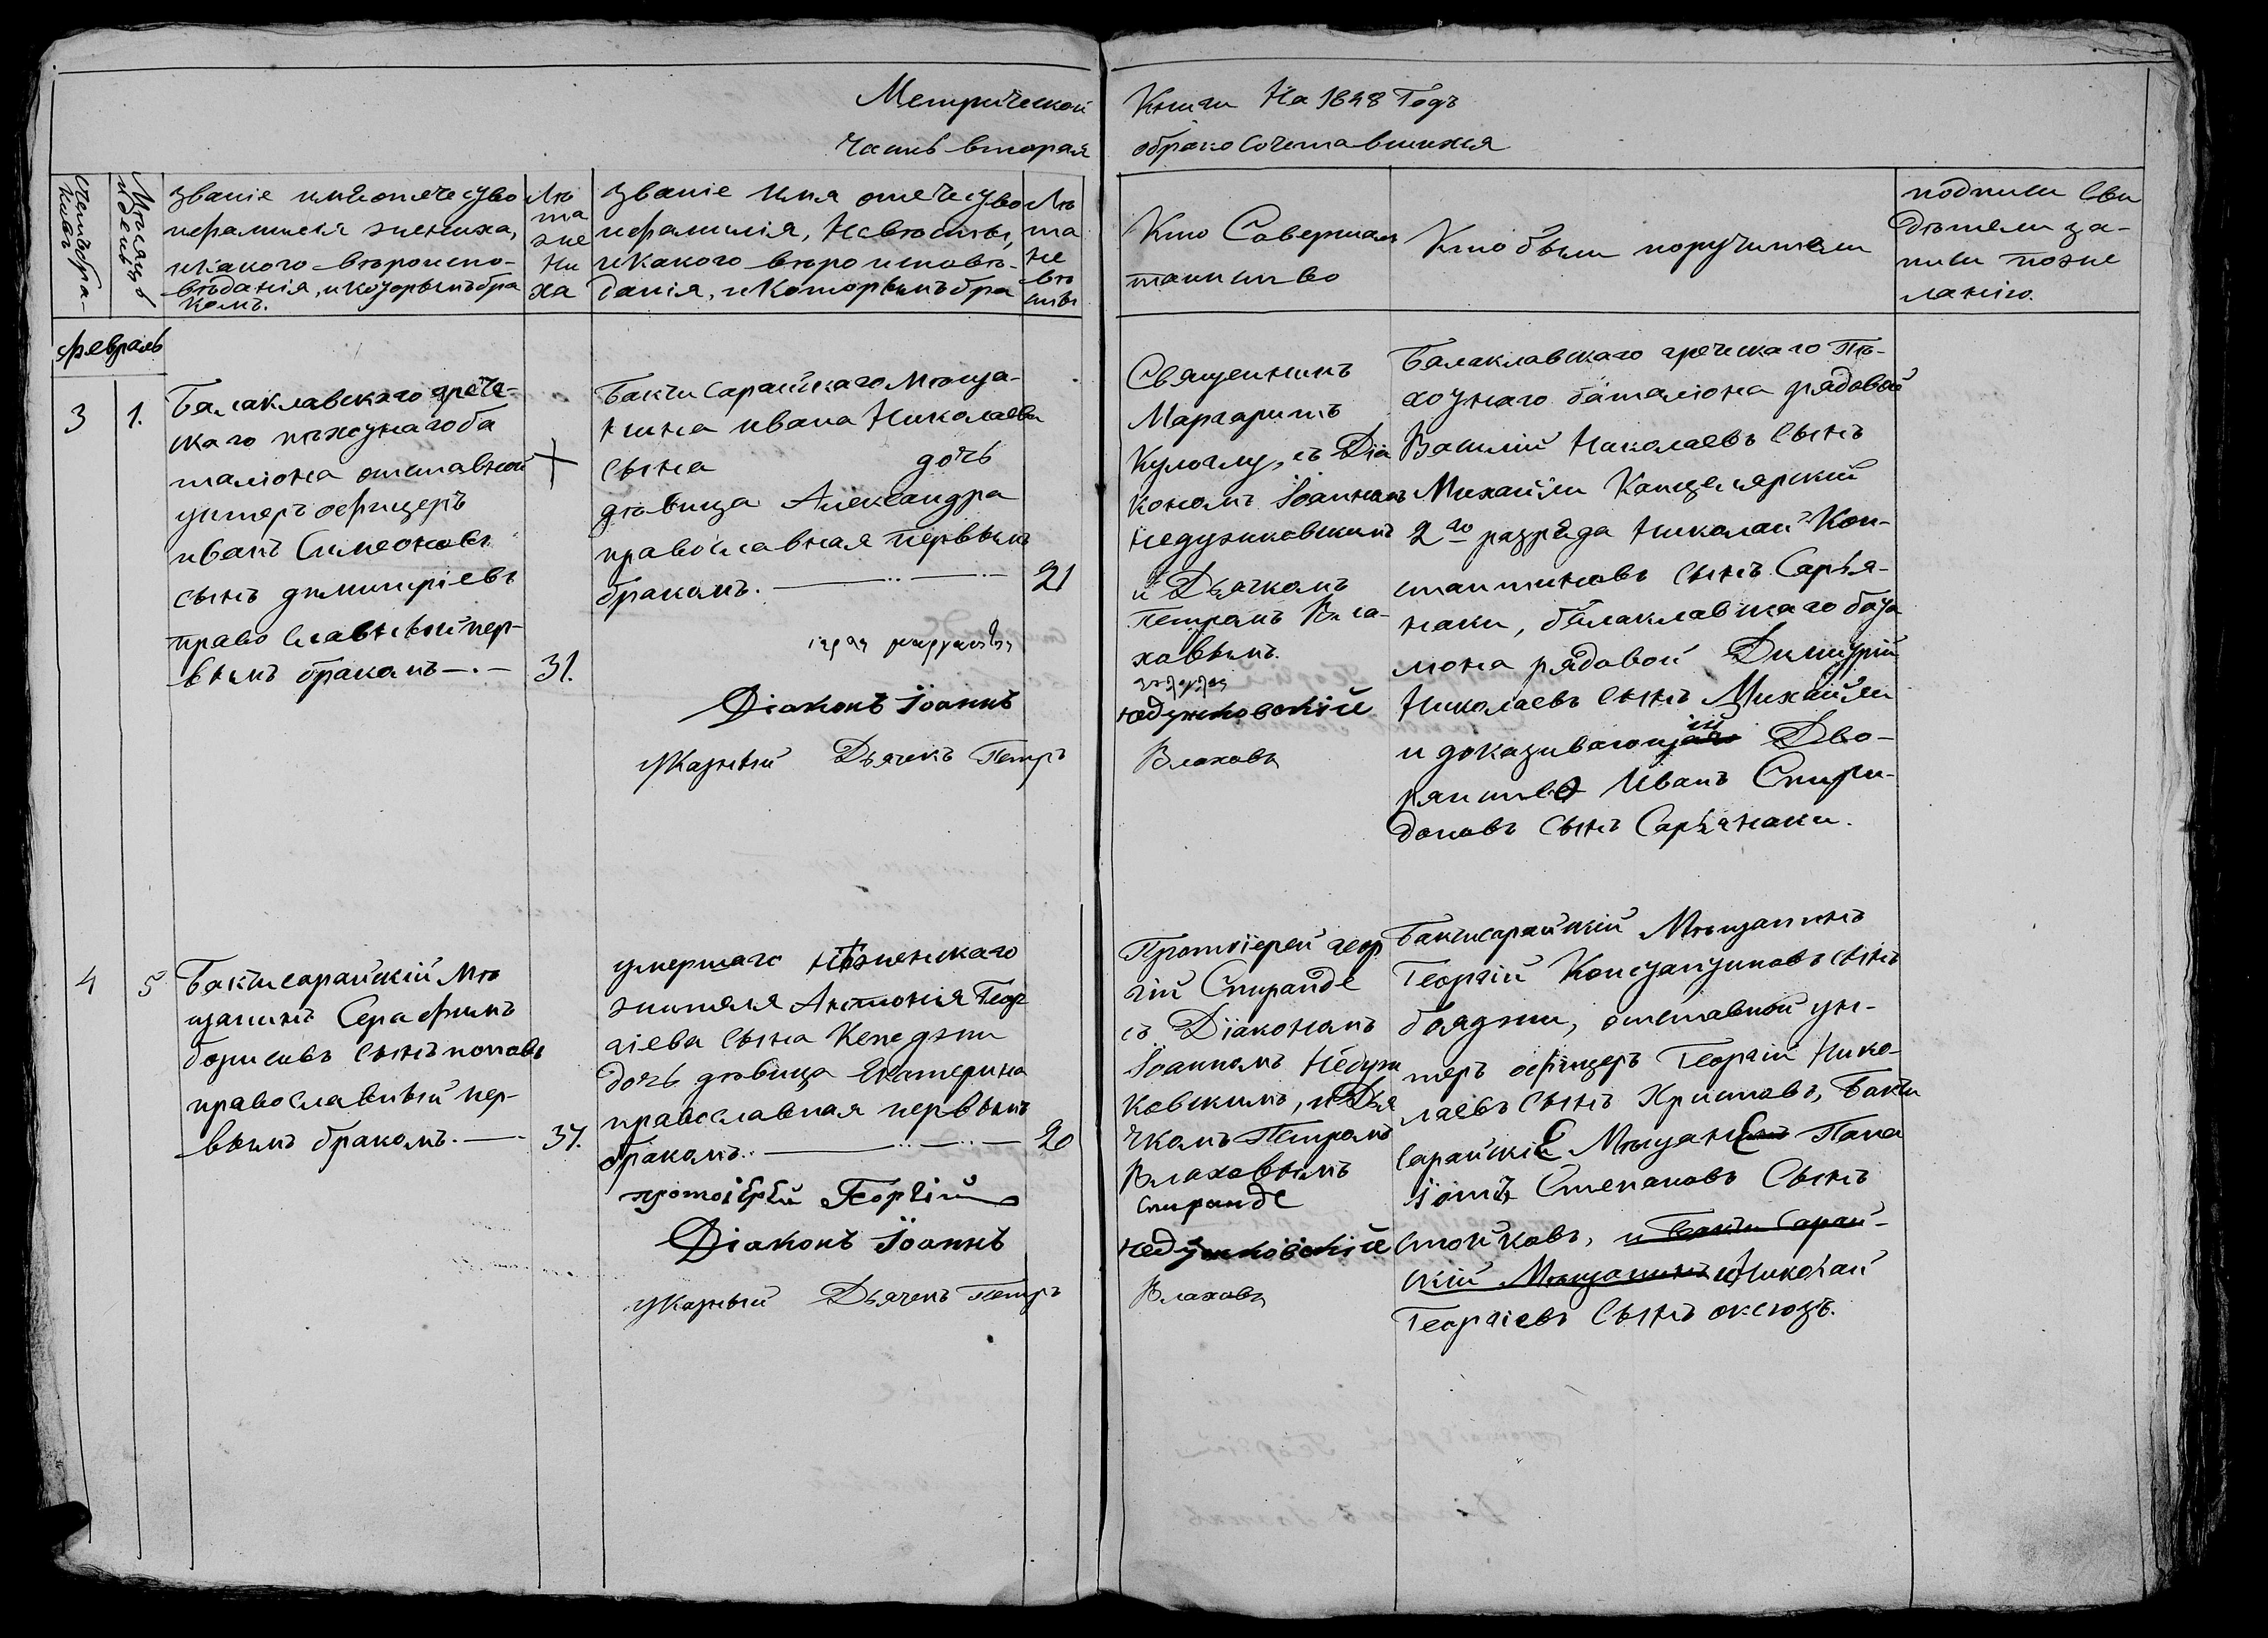 Метрической Книги На 1848 Годъ
Часть вторая обракосочетавшихся
Счетъ брако-
ковъ
Мѣсяцъ
и день
Званіе имя отечество
ифамилія жениха,
икакого вѣроиспо-
вѣданія, икоторымъ бра
комъ.
Лѣ
та
же
ни
ха
Званіе Имя отечество
ифамилія, Невѣсты,
икакого вѣроисповѣ-
данія, икоторымъ бра
Лѣ
та
не
вѣ
сты
Кто Совершалъ
таинство
Кто были поручители
подписи Сви
дѣтелей за-
писи поже
ланію.
февраль
3
1.
Балаклавскаго грече-
скаго пѣхотнаго ба
таліона отставной
унтеръ офицеръ
иванъ Симеоновъ
сынъ димитріевъ
православный пер-
вымъ бракомъ
31.
Бакчисарайскаго Мѣща-
нина ивана Николаева
сына дочь
дѣвица Александра
православная первымъ
бракомъ.
21
Діаконъ Іоаннъ
Указный Дьячекъ Петръ
Священникъ
Маргаритъ
Кулоглу, съ Діа
кономъ Іоанномъ
Недзяковскимъ
и Дьячкомъ
Петромъ Вла-
ховымъ.
Влаховъ
Балаклавскаго греческаго Пѣ-
хотнаго баталіона рядовой
Василій Николаевъ Сынъ
Михайли Канцелярскій
2го разряда Николай Кон-
стантиновъ Сынъ Сарья-
наки, балаклавскаго бата
ліона рядовой Димитрій
Николаевъ Сынъ Михайли
и доказивающій Дво-
рянство Иванъ Спири-
доновъ Сынъ Сарьянаки.
4
5
Бакчисарайскій Мѣ
щанинъ Серафимъ
борисовъ Сынъ поповъ
православный пер-
вымъ бракомъ.
37.
умершаго Нѣжинскаго
жителя Антонія Геор
гіева Сына Кенеджи
дочь дѣвица Екатерина
православная первымъ
бракомъ..
20
протоіерей Георгій
Діаконъ Іоаннъ
Указный Дьячекъ Петръ
Протоіерей Геор
гій Спиранде
съ Діакономъ
Іоанномъ
и Дья
чкомъ Петромъ
Влаховымъ
Спиранде
Влаховъ
Бакчисарайскій Мѣщанинъ
Георгій Константиновъ сынъ
бояджи, отставной ун-
теръ офицеръ Георгій Нико-
лаевъ Сынъ Христовъ, Бакчи
сарайскіе Мѣщане Пана
іотъ Степановъ Сынъ
Стойковъ, и Бакчисарай-
скій Мѣщанинъ и Николай
Георгіевъ Сынъ оксюзъ.